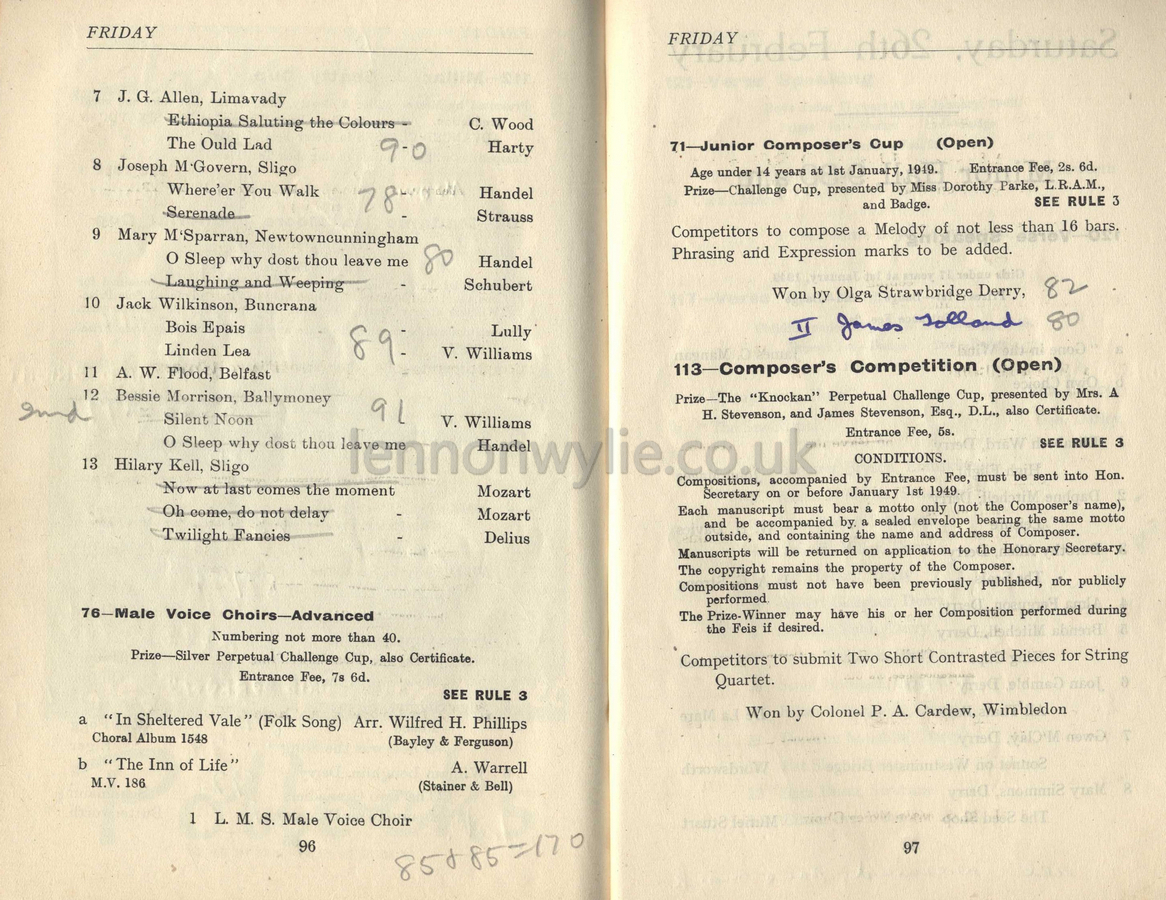 FRIDAY
7 J. G. Allen, Limavady
Ethiopia Saluting the Colours - C. Wood
The Ould Lad - Harty
90
8 Joseph M'Govern, Sligo
Where'er You Walk - Handel
78
Serenade - Strauss
9 Mary M'Sparran, Newtowncunningham
O Sleep why dost thou leave me Handel
80
Laughing and Weeping - Schubert
10 Jack Wilkinson, Buncrana
Bois Epais - Lully
89
Linden Lea - V. Williams
11 A. W. Flood, Belfast
12 Bessie Morrison, Ballymoney
2nd
91
Silent Noon V. Williams
O Sleep why dost thou leave me Handel
13 Hilary Kell, Sligo
Now at last comes the moment Mozart
Oh come, do not delay - Mozart
Twilight Fancies - Delius
76—Male Voice Choirs—Advanced
Numbering not more than 40.
Prize—Silver Perpetual Challenge Cup, also Certificate.
Entrance Fee, 7s 6d.
SEE RULE 3
a "In Sheltered Vale" (Folk Song) Arr. Wilfred H. Phillips
Choral Album 1548 (Bayley & Ferguson)
b "The Inn of Life" A. Warrell
M.V. 186 (Stainer & Bell)
1 L. M. S. Male Voice Choir
96
85+85=170
FRIDAY
71—Junior Composer's Cup (Open)
Age under 14 years at 1st January, 1949. Entrance Fee, 2s. 6d.
Prize—Challenge Cup, presented by Miss Dorothy Parke, L.R.A.M.,
and Badge. SEE RULE 3
Competitors to compose a Melody of not less than 16 bars.
Phrasing and Expression marks to be added.
Won by Olga Strawbridge Derry, 82
II James Tolland 80
113—Composer's Competition (Open)
Prize—The "Knockan" Perpetual Challenge Cup, presented by Mrs. A
H. Stevenson, and James Stevenson, Esq., D.L., also Certificate.
Entrance Fee, 5s.
SEE RULE 3
CONDITIONS.
Compositions, accompanied by Entrance Fee, must be sent into Hon.
Secretary on or before January 1st 1949.
Each manuscript must bear a motto only (not the Composer's name),
and be accompanied by a sealed envelope bearing the same motto
outside, and containing the name and address of Composer.
Manuscripts will be returned on application to the Honorary Secretary.
The copyright remains the property of the Composer.
Compositions must not have been previously published, nor publicly
performed.
The Prize-Winner may have his or her Composition performed during
the Feis if desired.
Competitors to submit Two Short Contrasted Pieces for String
Quartet.
Won by Colonel P. A. Cardew, Wimbledon
97
lennonwylie.co.uk